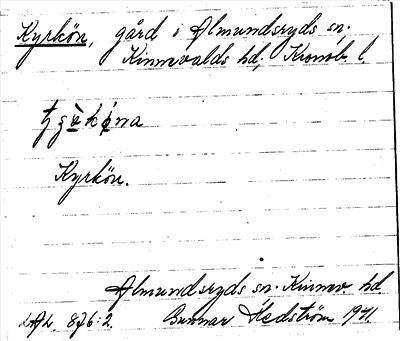 Kyrkön, gård i Almundsryds sn.
Kinnevalds hd; Kronob. l.
Kyrkön.
Almundsryds sn. Kinnev. hd
LAL. 876:2. Gunnar Hedström 1941.